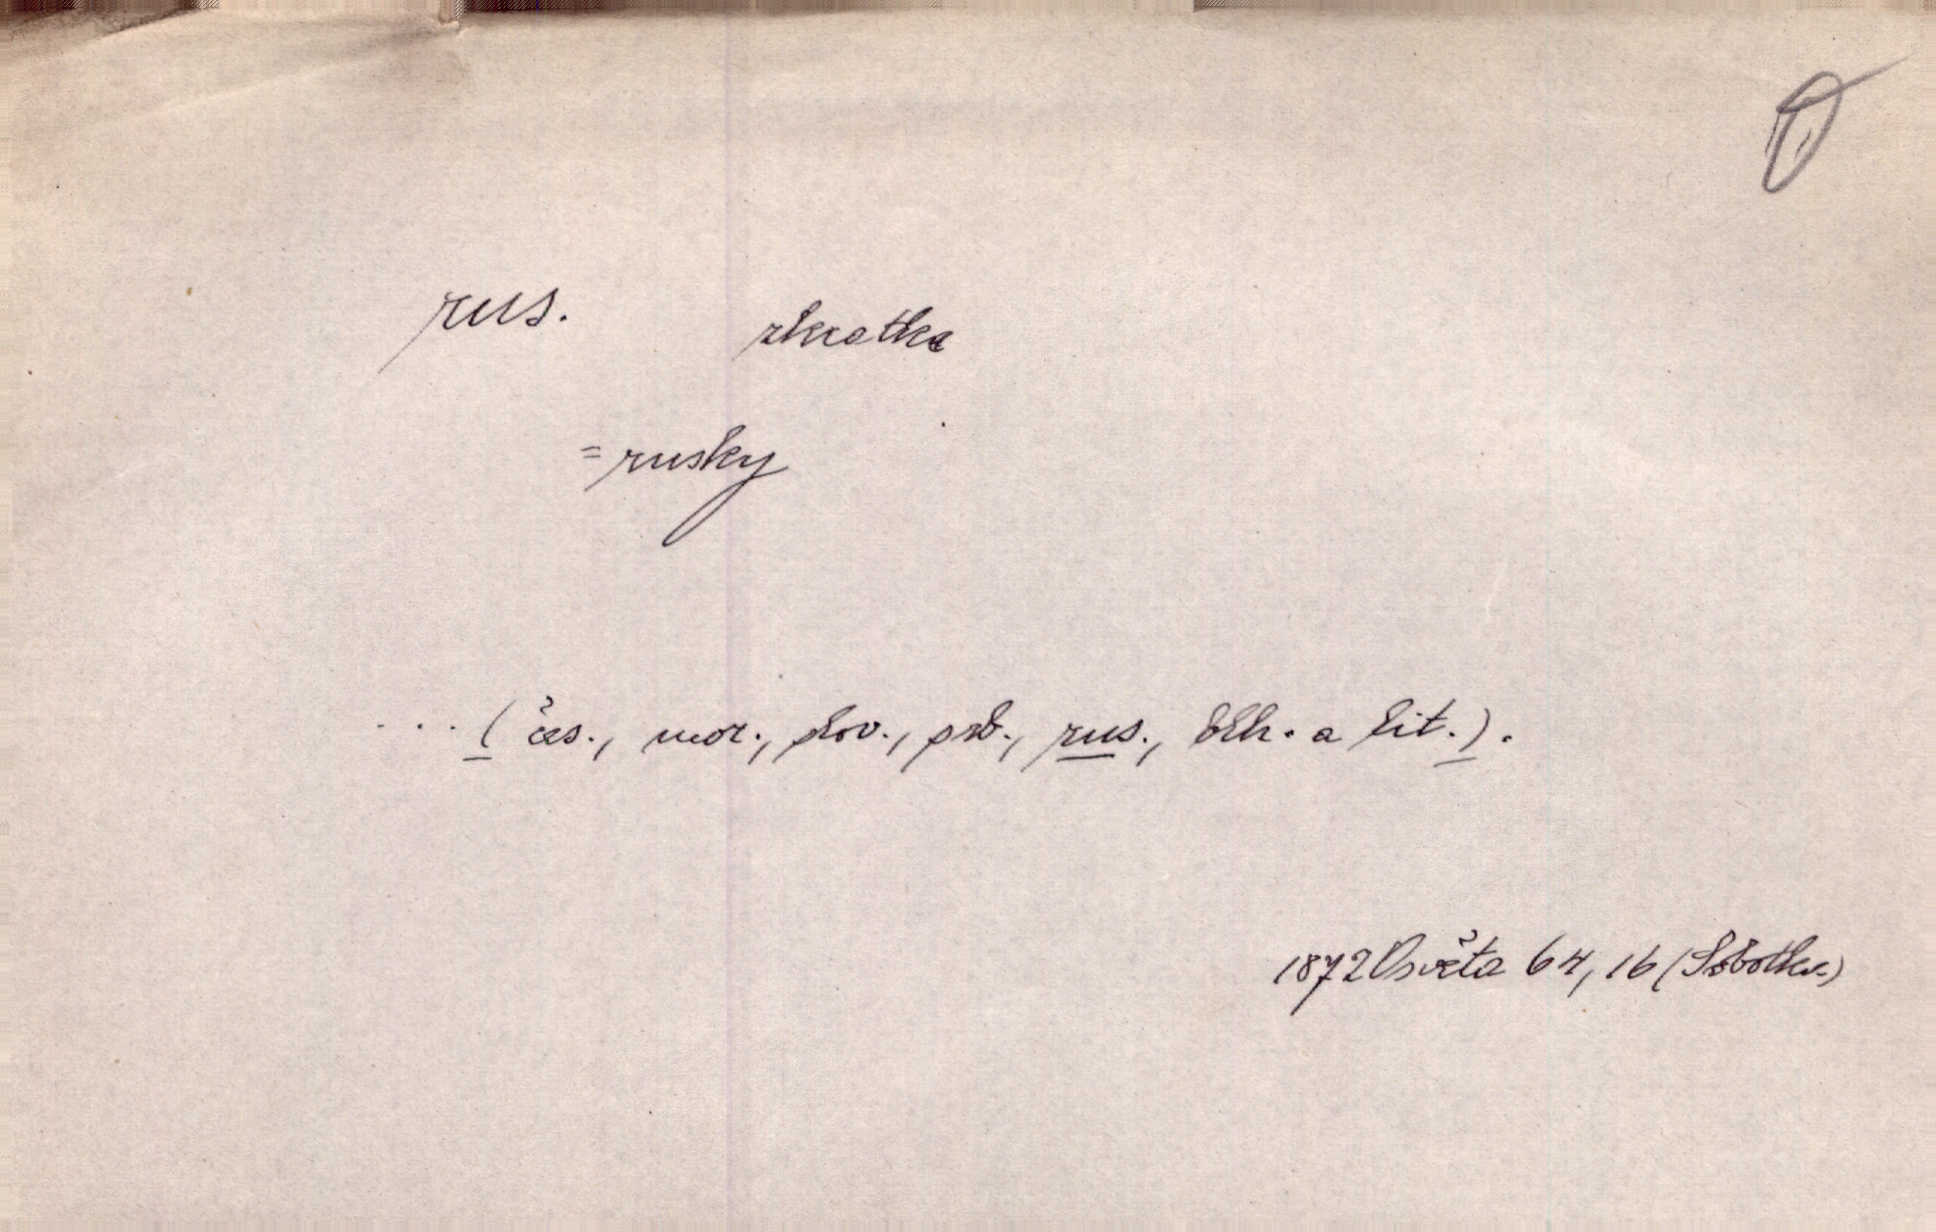 O
rus. zkratka
= rusky
... (čes., mor., slov., srb., rus., blh. a lit.).
1872 Osvěta 64, 16 (Sobotka)